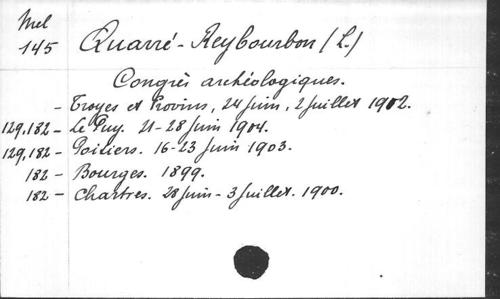 Mel
145 Quarré-Reybourbon (L.)
Congrès archéologiques.
- Troyes et Provins, 24 juin, 2 juillet 1902.
129,182 - Le Puy. 21-28 juin 1904.
129,182 - Poitiers. 16-23 juin 1903.
182 - Bourges. 1899.
182 - Chartres. 28 juin - 3 juillet. 1900.